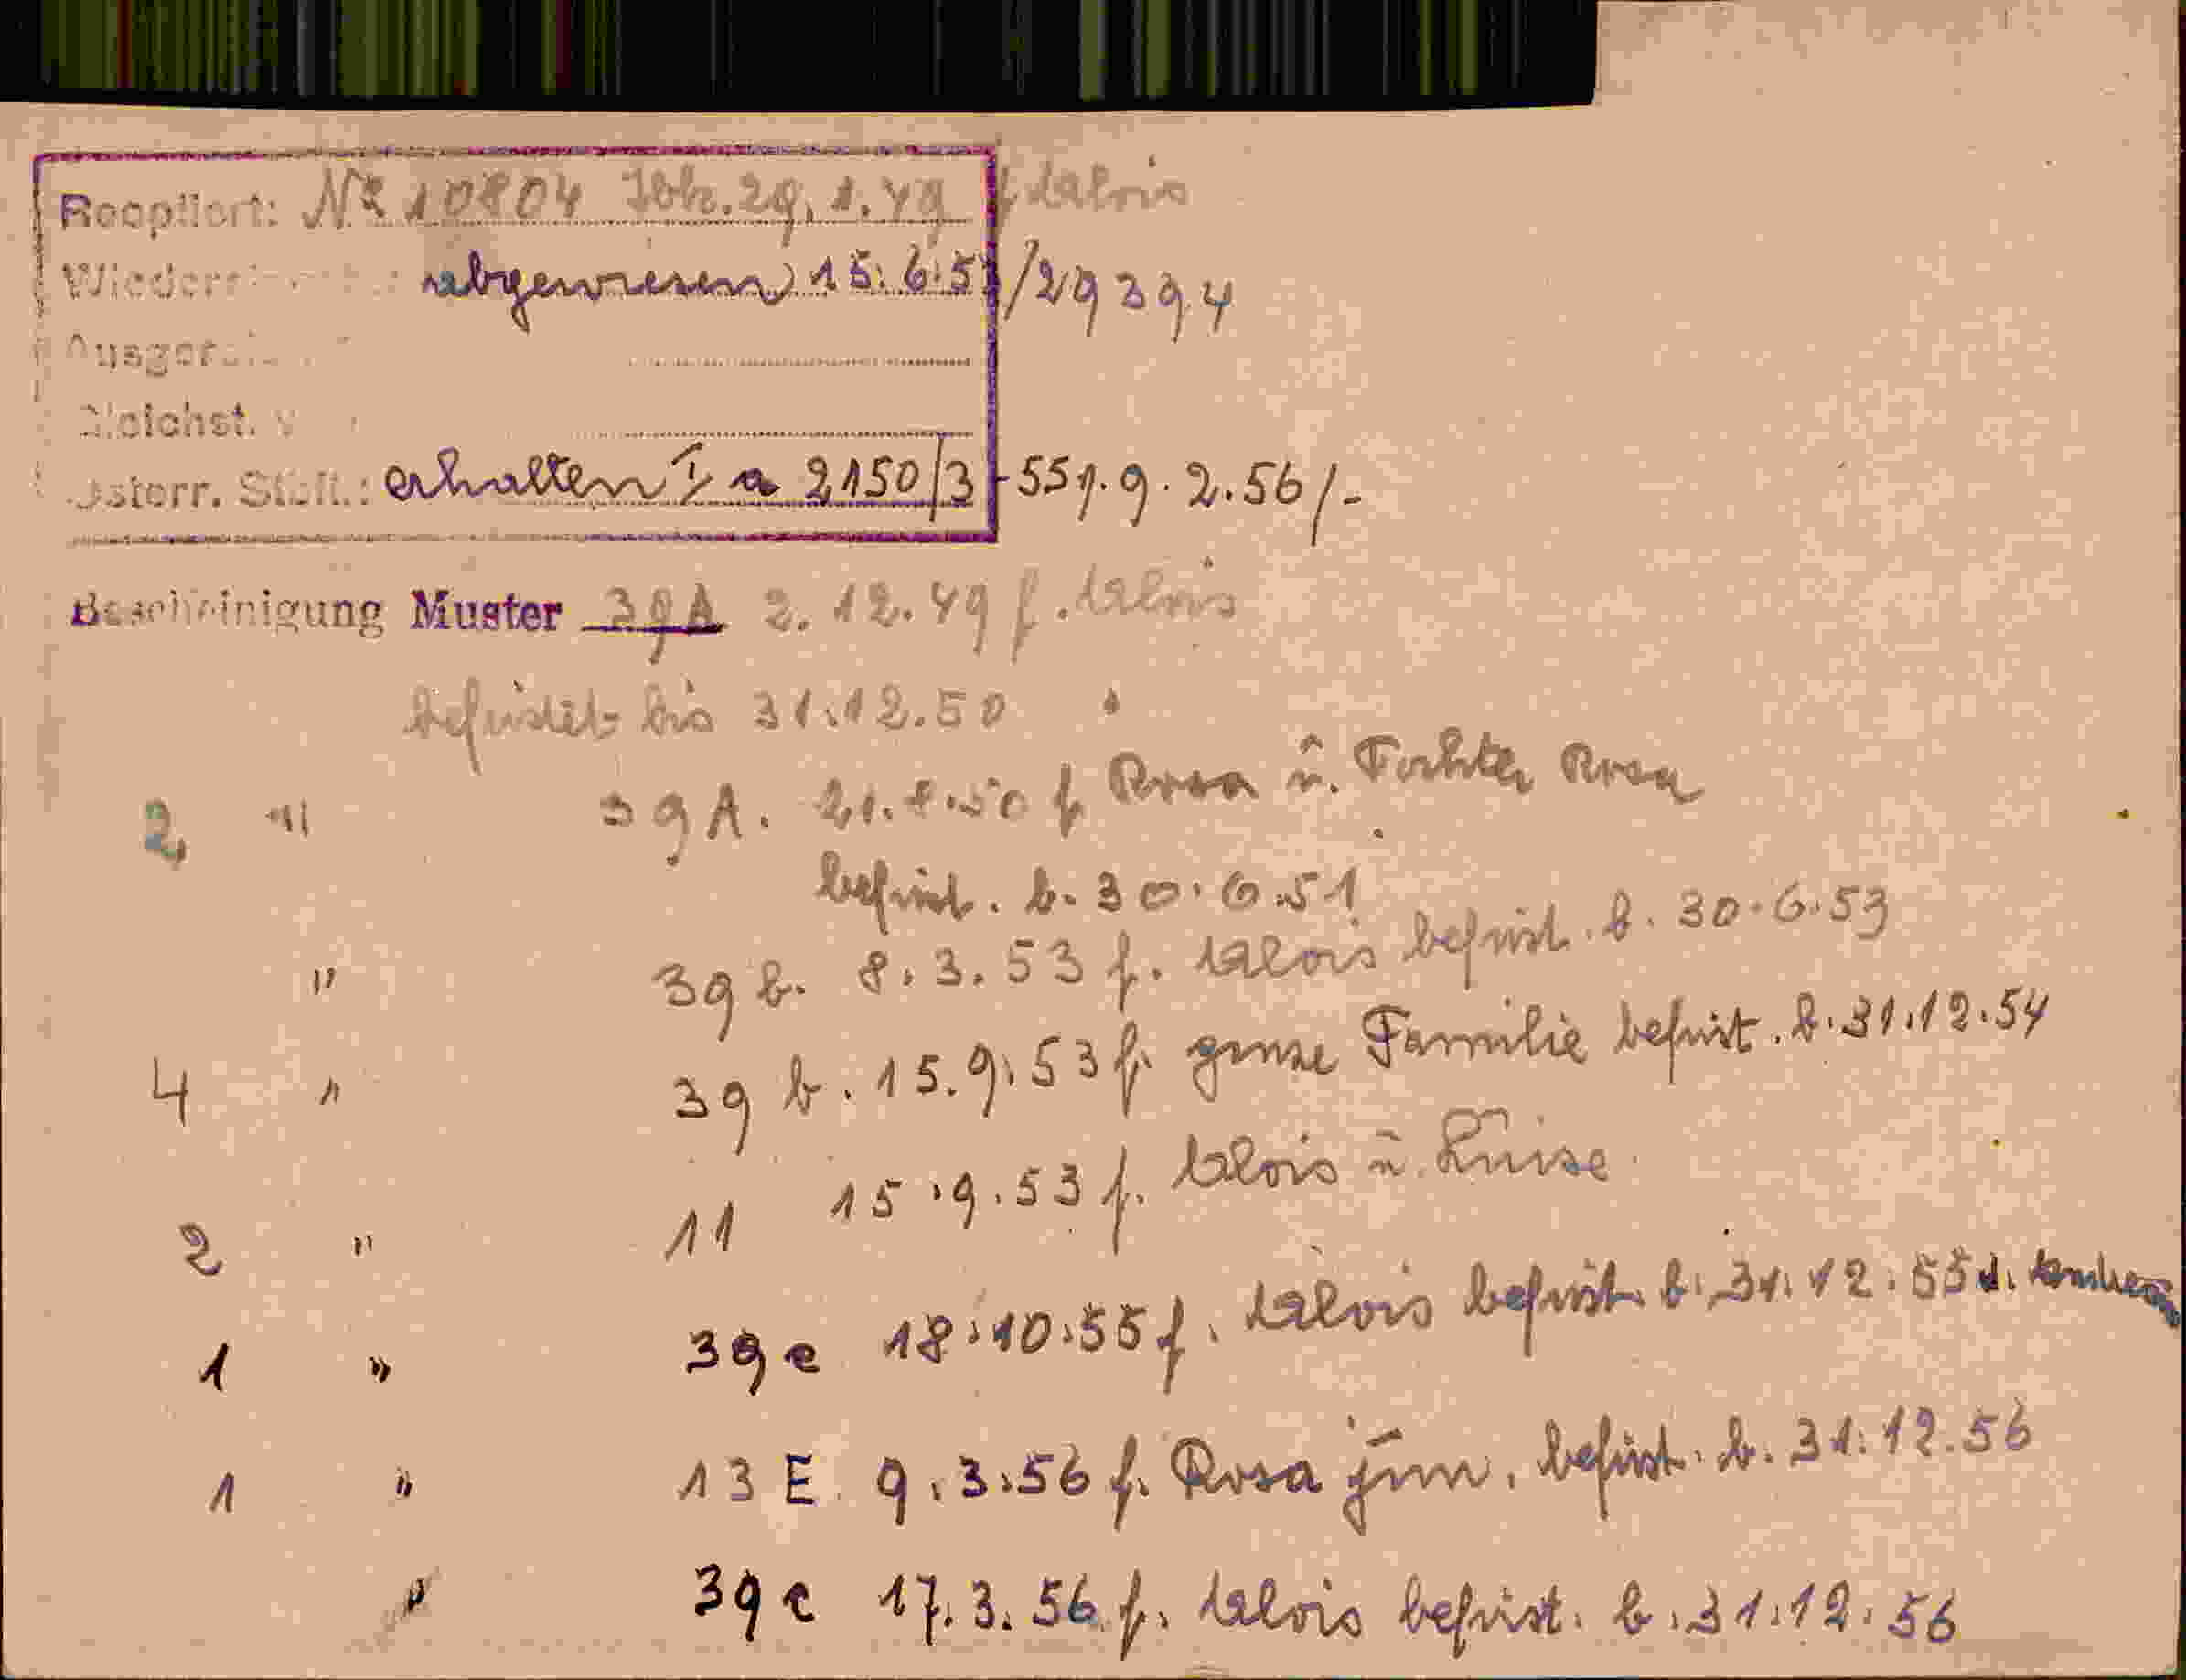 Reoptiert: No 10804 Ibk. 29.1.49 f. Alois
abgewiesen 15.6.51/29394
Österr. Stbft.: erhalten I a 2150/3-551.9.2.56/-
Bescheinigung Muster 39A 2.12.49 f. Alois
befristet bis 31.12.50
2 " 39 A. 21.8.50 f. Rosa u. Tochter Rosa
befrist. b. 30.6.51
" 39 b. 8.3.53 f. Alois befrist. b. 30.6.53
4 " 39 b. 15.9.53 f. ganze Familie befrist. b. 31.12.54
2 " 11 15.9.53 f. Alois u. Luise
1 " 39 e 18.10.55 f. Alois befrist. b. 31.12.55
1 " 13 E 9.3.56 f. Rosa jun. befrist. b. 31.12.56
" 39 e 17.3.56 f. Alois befrist. b. 31.12.56